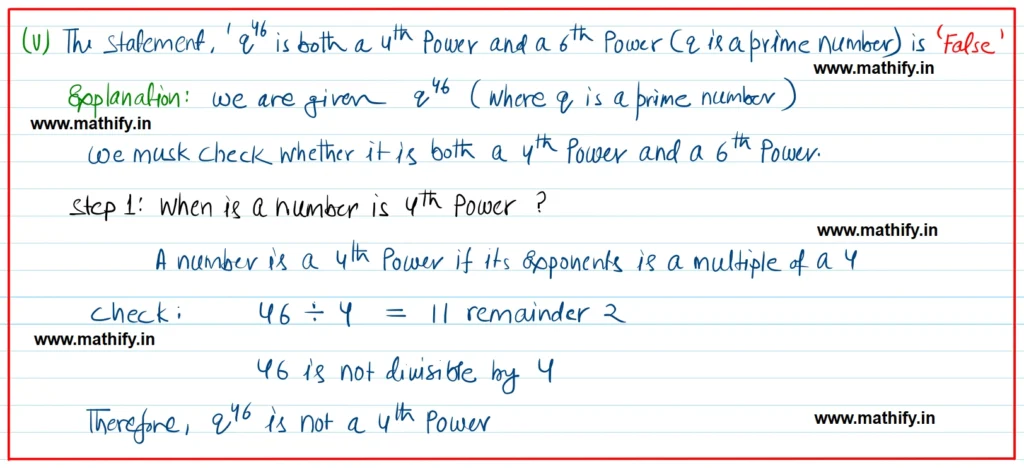 (v) The statement, 'q^46 is both a 4th Power and a 6th Power (q is a prime number) is 'False'
www.mathify.in
Explanation: we are given q^46 (where q is a prime number)
www.mathify.in
we musk check whether it is both a 4th Power and a 6th Power.
Step 1: When is a number is 4th Power ?
www.mathify.in
A number is a 4th Power if its Exponents is a multiple of a 4
check: 46 ÷ 4 = 11 remainder 2
www.mathify.in
46 is not divisible by 4
Therefore, q^46 is not a 4th Power
www.mathify.in